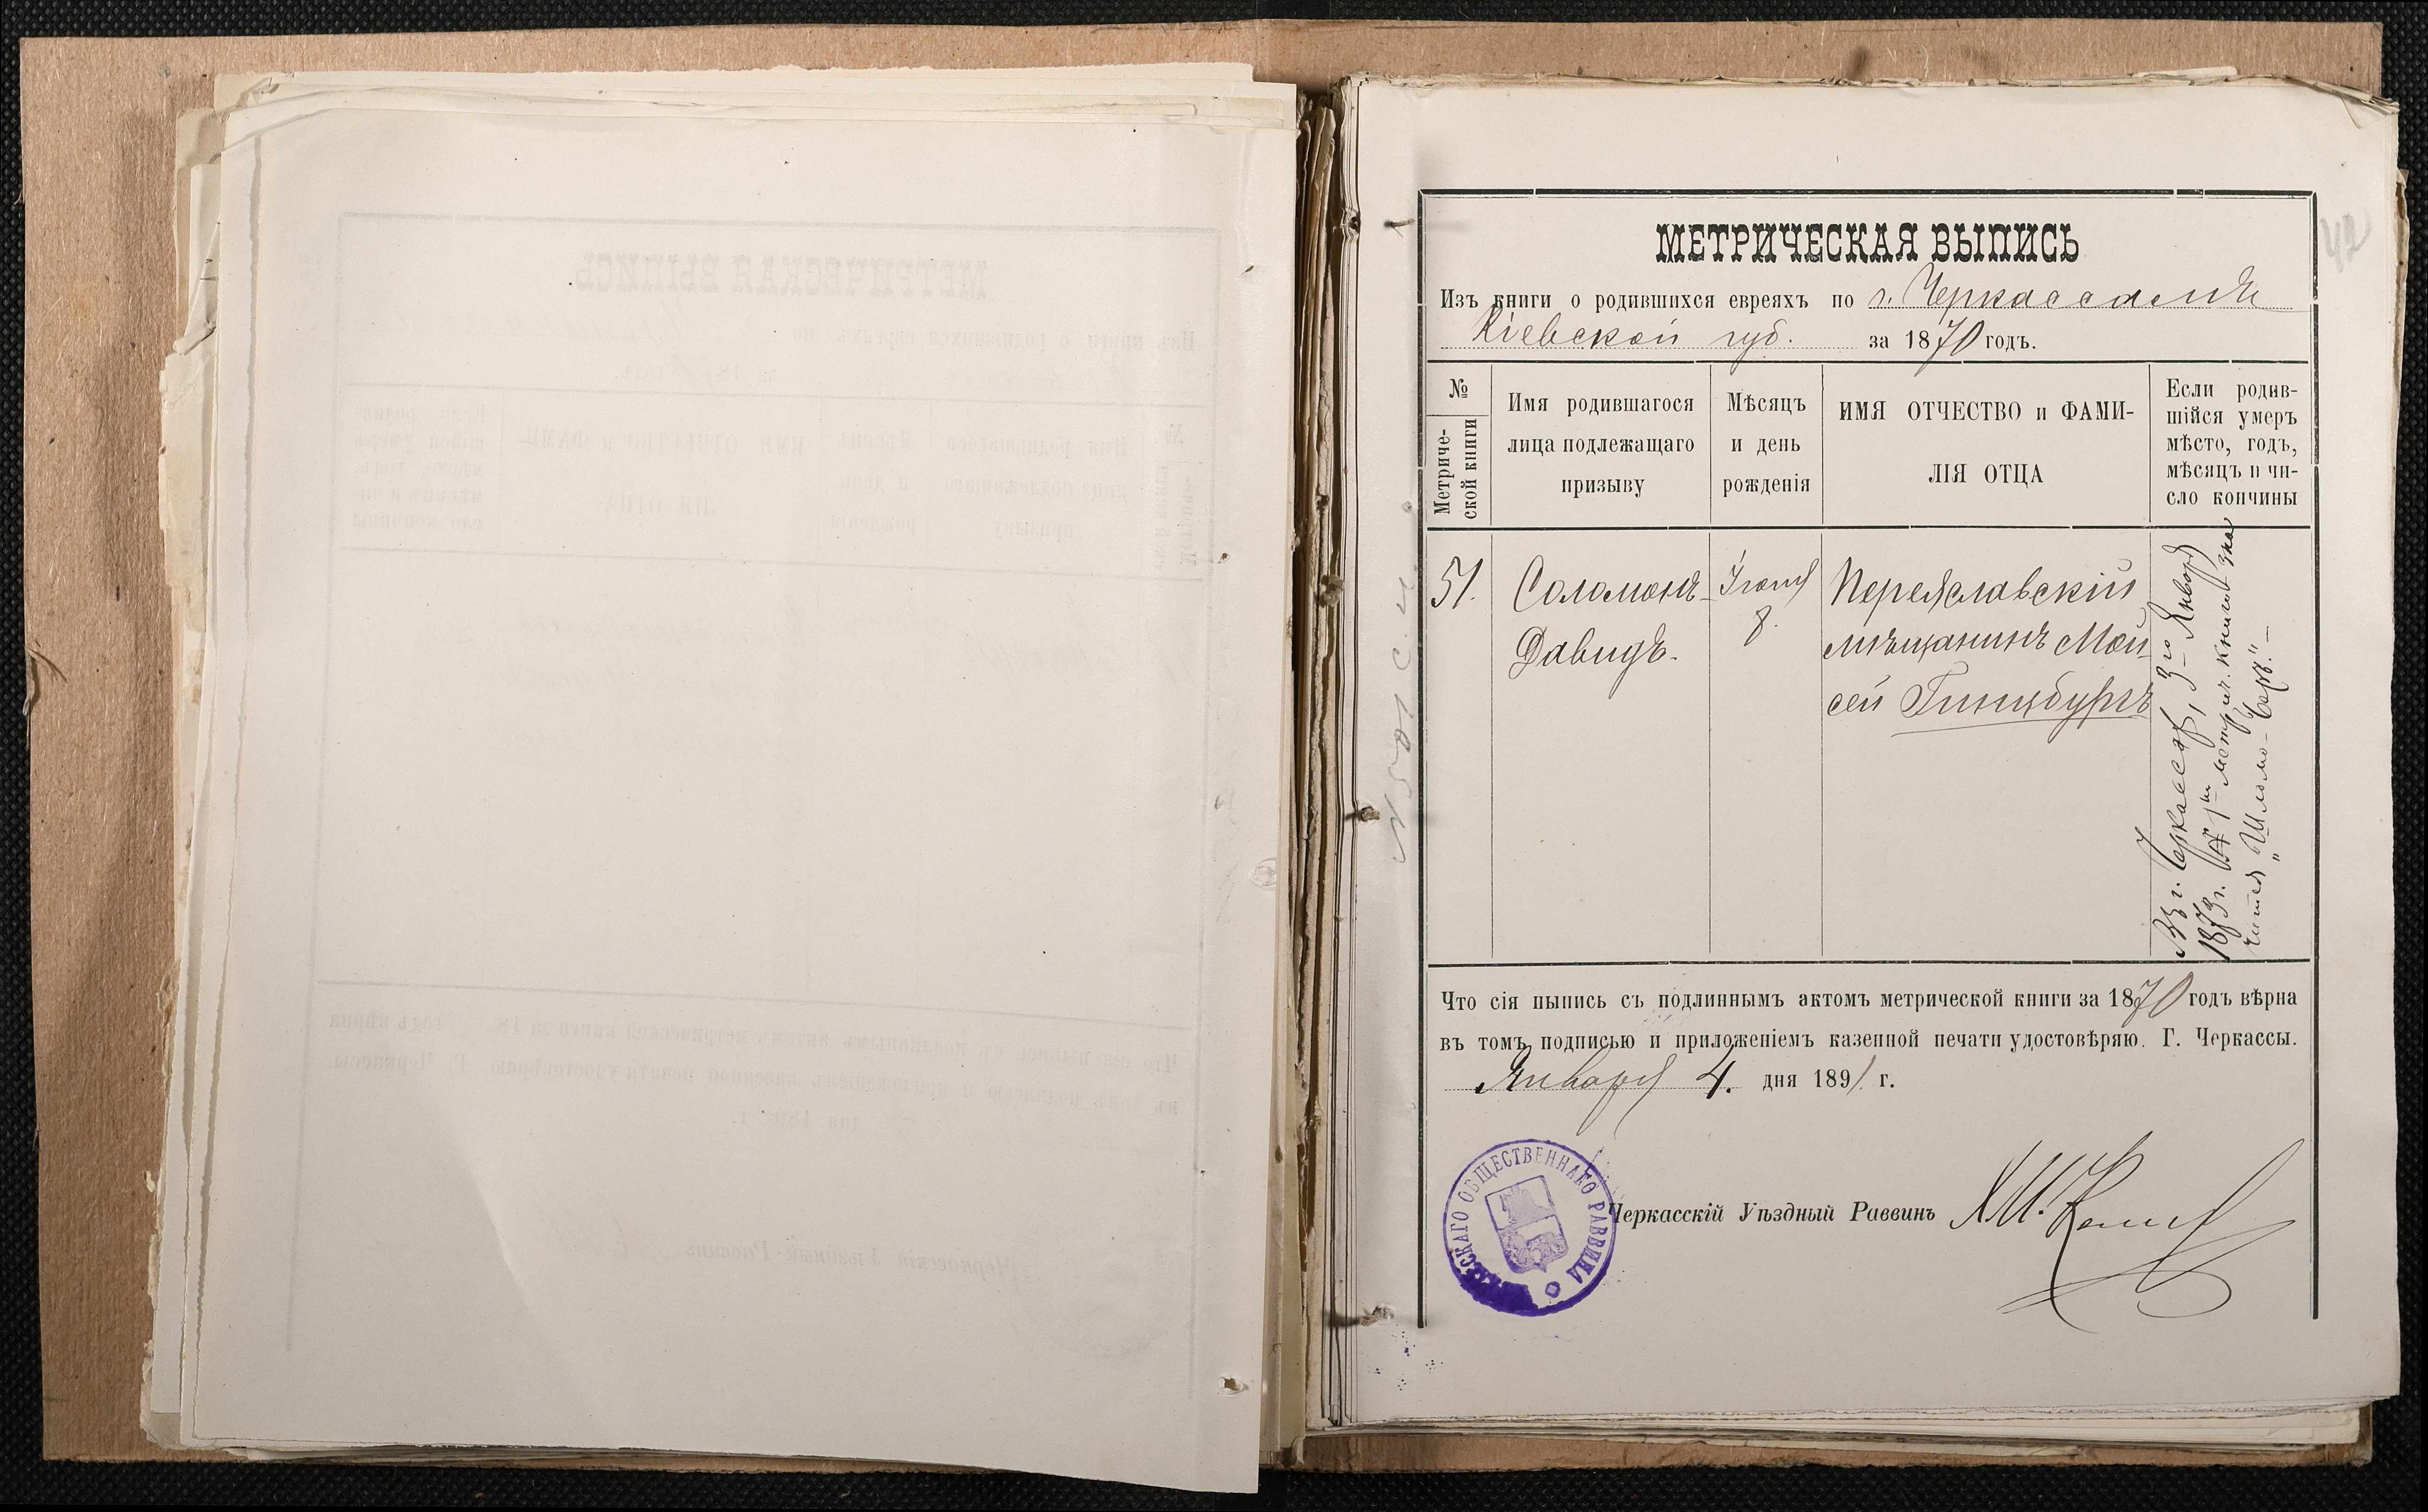 МЕТРИЧЕСКАЯ ВЫПИСЬ
Изъ книги о родившихся евреяхъ по г. Черкассамъ
Кіевской губ. за 1870 годъ.
№
Метриче-
ской книги
Имя родившагося
лица подлежащаго
призыву
Мѣсяцъ
и день
рожденія
ИМЯ ОТЧЕСТВО и ФАМИ-
ЛІЯ ОТЦА
Если родив-
шійся умеръ
мѣсто, годъ,
мѣсяцъ и чи-
сло кончины
51.
Соломонъ-
Давидъ.
Іюня
8.
Переяславскій
мѣщанинъ Мои-
сей Гинцбургъ
Въ г. Черкассахъ, 3го Января
1873 г. метрич. книгѣ зна
чится „Шломо-
Что сія выпись съ подлиннымъ актомъ метрической книги за 1870 годъ вѣрна
въ томъ подписью и приложеніемъ казенной печати удостовѣряю. Г. Черкассы.
Января 4. дня 1891 г.
Черкасскій Уѣздный Раввинъ
ОБЩЕСТВЕННАГО РАВВИНА
42